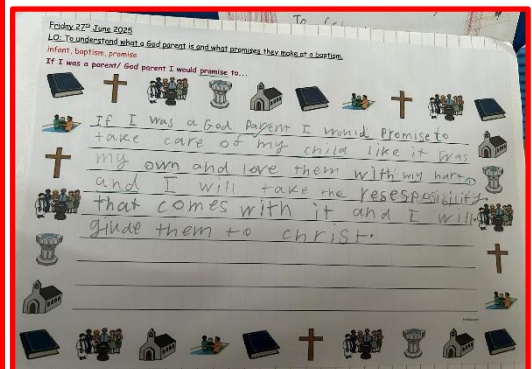 Friday 27th June 2025
LO: To understand what a God parent is and what promises they make at a baptism.
infant, baptism, promise
If I was a parent/ God parent I would promise to...
If I was a God parent I would promise to
take care of my child like it was
my own and love them with my hart
and I will take the resesposibility
that comes with it and I will
giude them to christ.